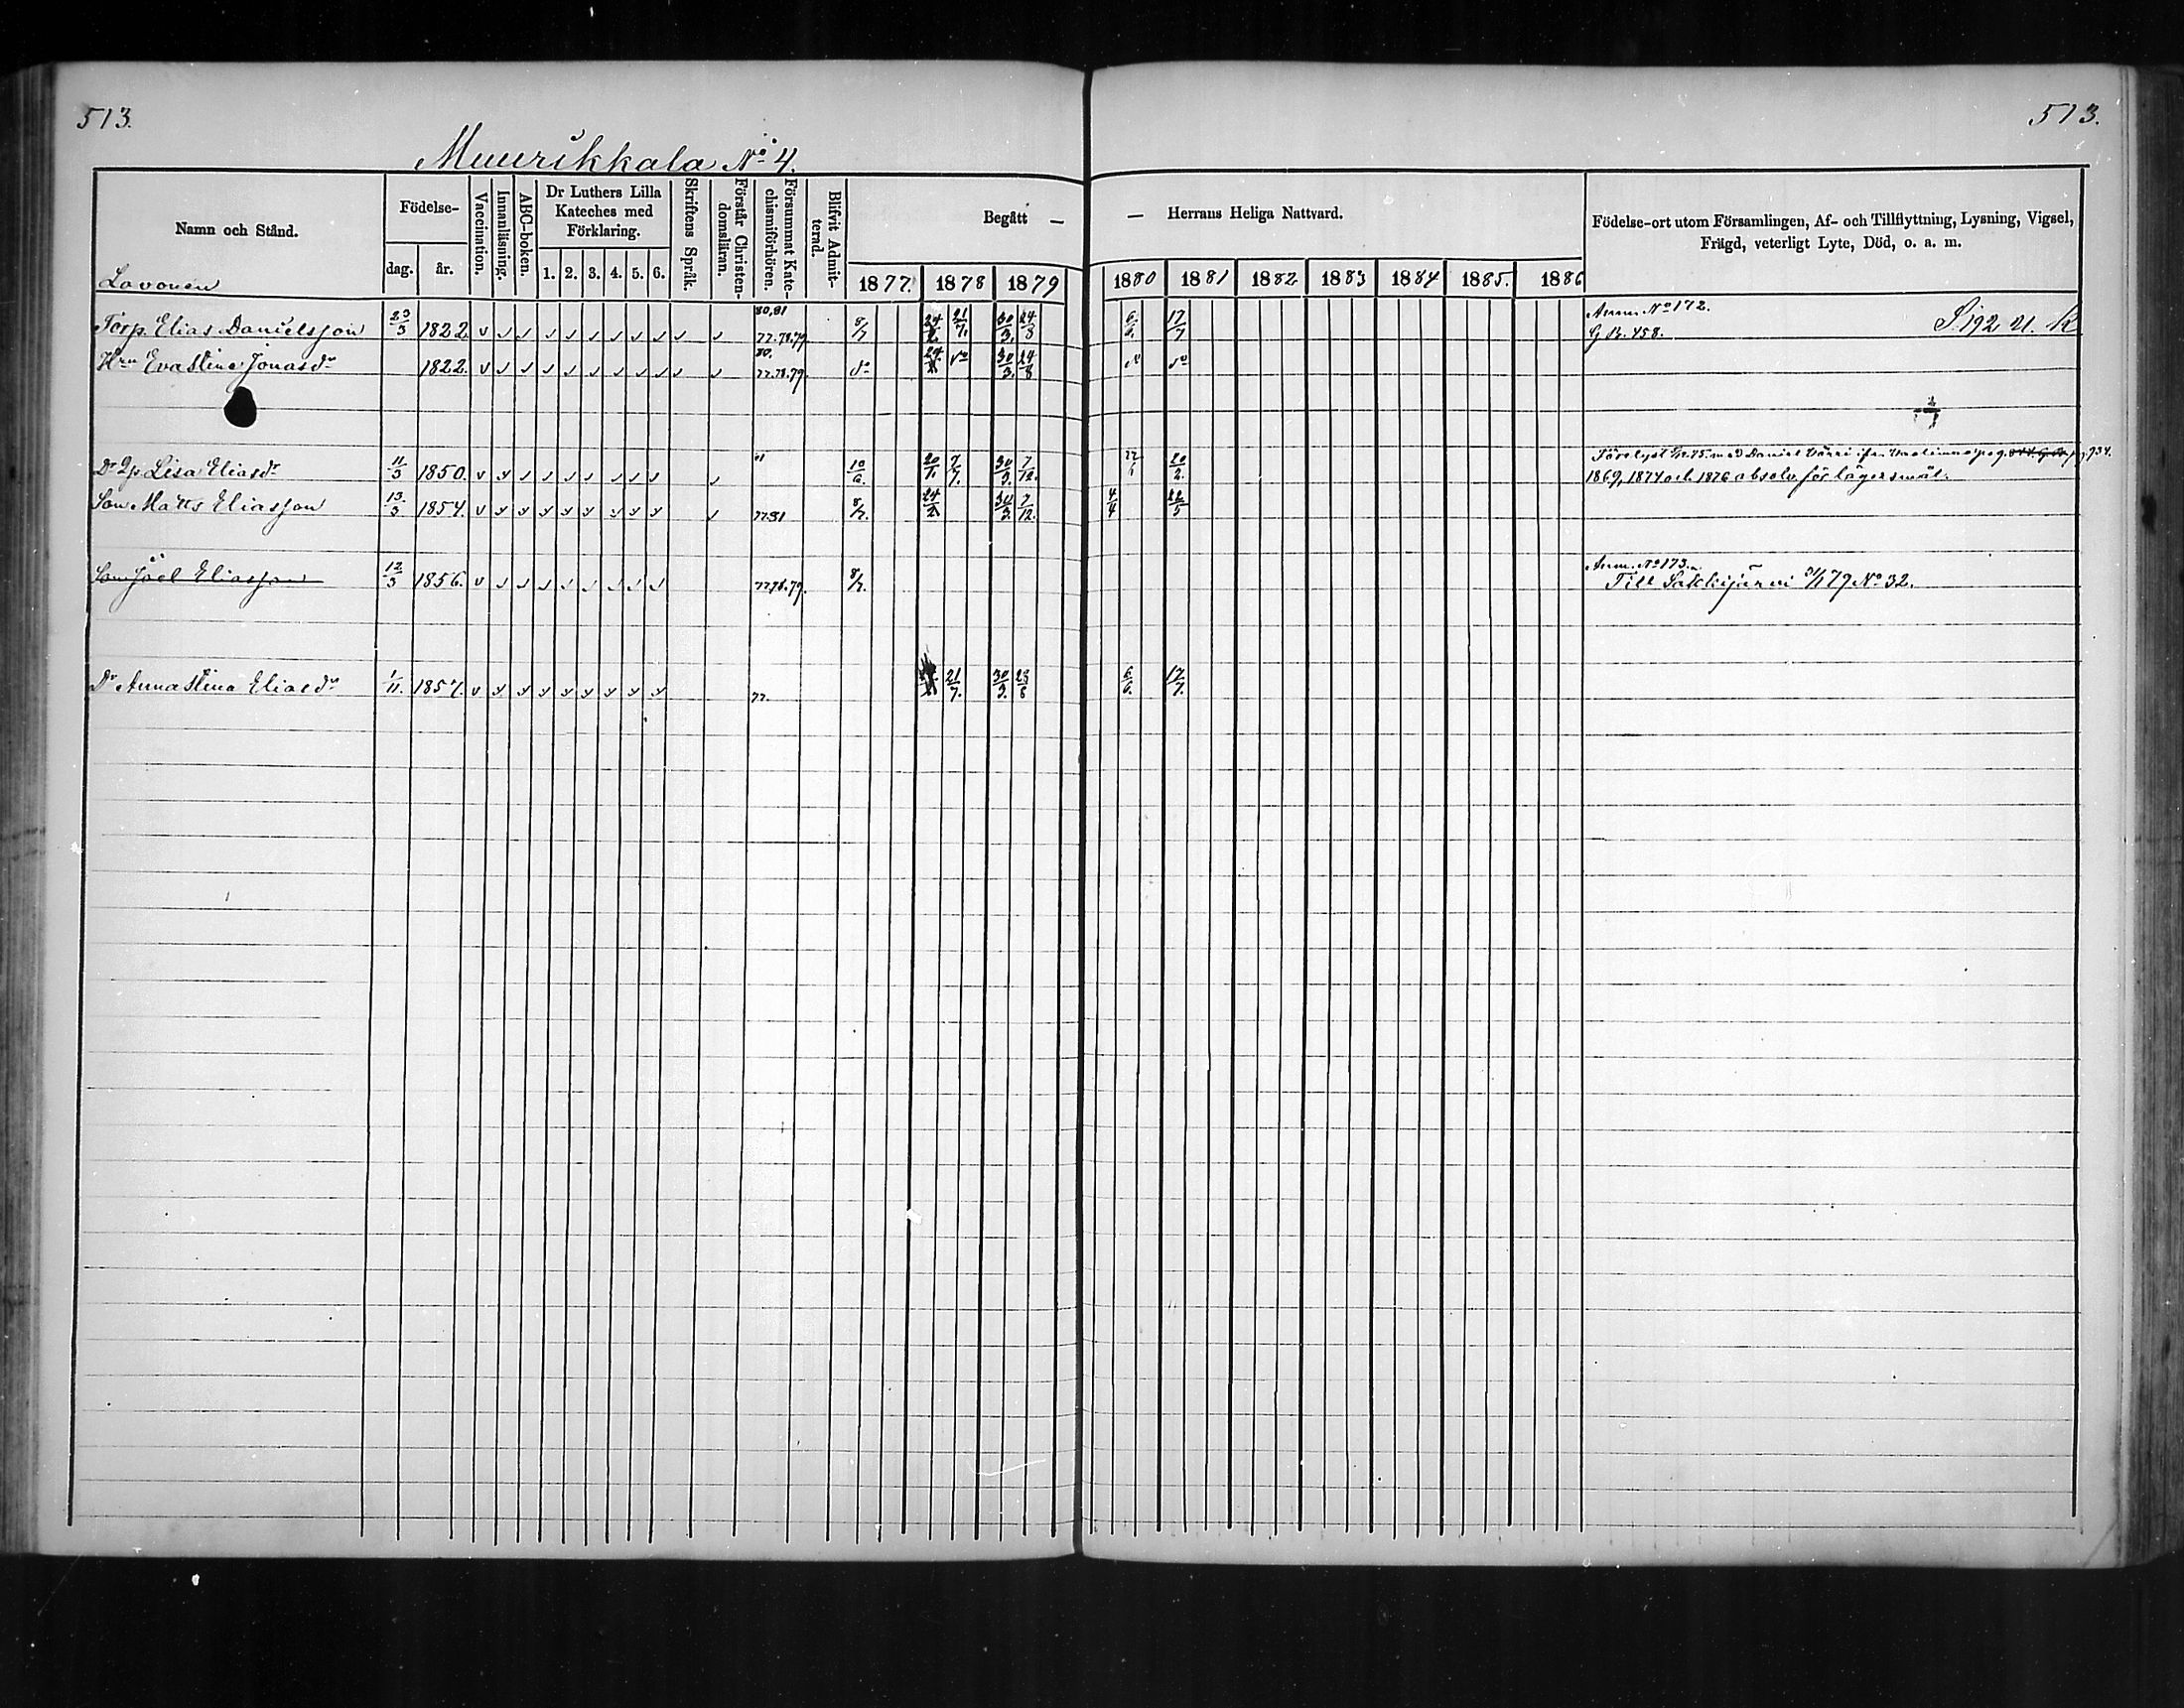 513.
513.
Muurikkala No 4.
Namn och Stånd.
Födelse-
dag.
år.
Vaccination.
Innanläsning.
ABC-boken.
Dr Luthers Lilla Kateches med Förklaring.
1. 2. 3. 4. 5. 6.
Skriftens Språk.
Förstår Christendomsläran.
Försummat Katechismiförhören.
Blifvit Admitterad.
Begått —
— Herrans Heliga Nattvard.
1877. 1878 1879
1880 1881 1882 1883 1884 1885. 1886
Födelse-ort utom Församlingen, Af- och Tillflyttning, Lysning, Vigsel,
Frägd, veterligt Lyte, Död, o. a. m.
Lavonen
Torp. Elias Danielsson 23/3 1822 v 80,81 77.78.79 8/7 21/7 30/3 24/8 6/6 17/7 Anm. No 172.
G. B. 458. S. 192 U. k
Hru Eva Stina Jonasdr 1822. v 80. 77.78.79. do 24 do 30/3 24/8 do do
Dr Qp Lisa Eliasdr 11/3 1850. v 10/6 20/1 7/7. 30/3 7/12. 20/2. med Daniel
1869, 1874 och 1876 absolv. för lägersmål.
Son Matts Eliasson 13/3 1854. v 77 81 8/7. 24/2 30/3 7/12. 4/4 22/5
Son Joel Eliasson 12/3 1856. v 77 78.79. 8/7. Anm. No 173.
Till Säkkijärvi 79 No 32.
Dr Anna Stina Eliasdr 1/11. 1857. v 77. 21/7. 30/3 23/8 6/6. 17/7.